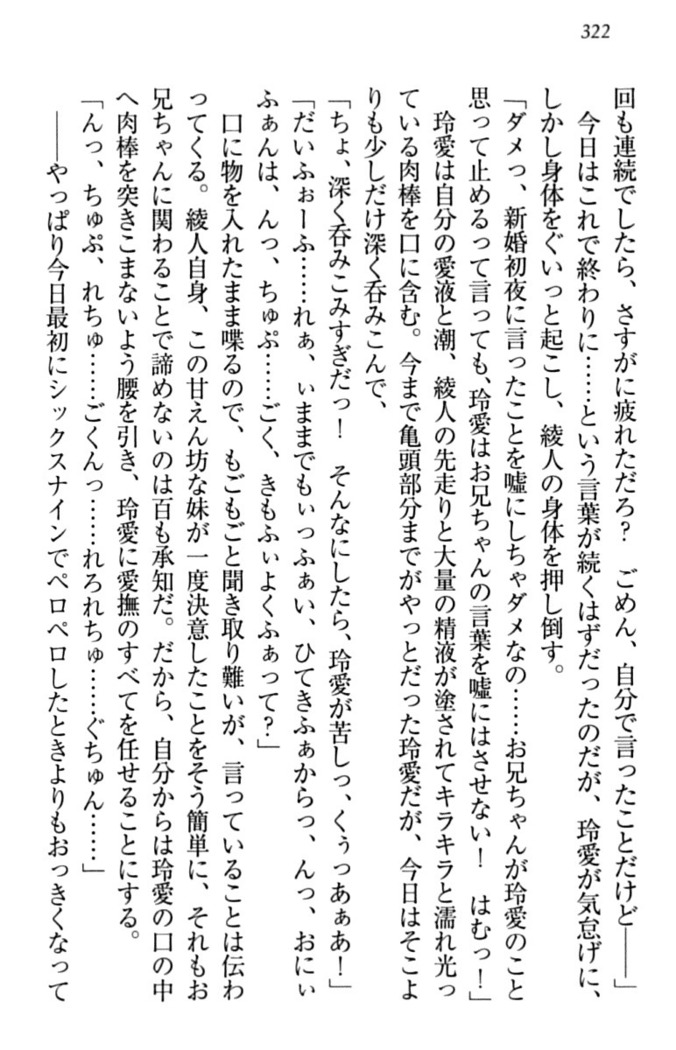 322
回も連続でしたら、さすがに疲れただろ？　ごめん、自分で言ったことだけど――」
　今日はこれで終わりに……という言葉が続くはずだったのだが、玲愛が気怠げに、
しかし身体をぐいっと起こし、綾人の身体を押し倒す。
「ダメっ、新婚初夜に言ったことを嘘にしちゃダメなの……お兄ちゃんが玲愛のこと
思って止めるって言っても、玲愛はお兄ちゃんの言葉を嘘にはさせない！　はむっ！」
　玲愛は自分の愛液と潮、綾人の先走りと大量の精液が塗されてキラキラと濡れ光っ
ている肉棒を口に含む。今まで亀頭部分までがやっとだった玲愛だが、今日はそこよ
りも少しだけ深く呑みこんで、
「ちょ、深く呑みこみすぎだっ！　そんなにしたら、玲愛が苦しっ、くぅっあぁあ！」
「だいふぉーふ……れぁ、ぃままでもぃっふぁい、ひてきふぁからっ、んっ、おにぃ
ふぁんは、んっ、ちゅぷ……ごく、きもふぃよくふぁって？」
　口に物を入れたまま喋るので、もごもごと聞き取り難いが、言っていることは伝わ
ってくる。綾人自身、この甘えん坊な妹が一度決意したことをそう簡単に、それもお
兄ちゃんに関わることで諦めないのは百も承知だ。だから、自分からは玲愛の口の中
へ肉棒を突きこまないよう腰を引き、玲愛に愛撫のすべてを任せることにする。
「んっ、ちゅぷ、れちゅ……ごくんっ……れろれちゅ……ぐちゅん……」
　――やっぱり今日最初にシックスナインでペロペロしたときよりもおっきくなって